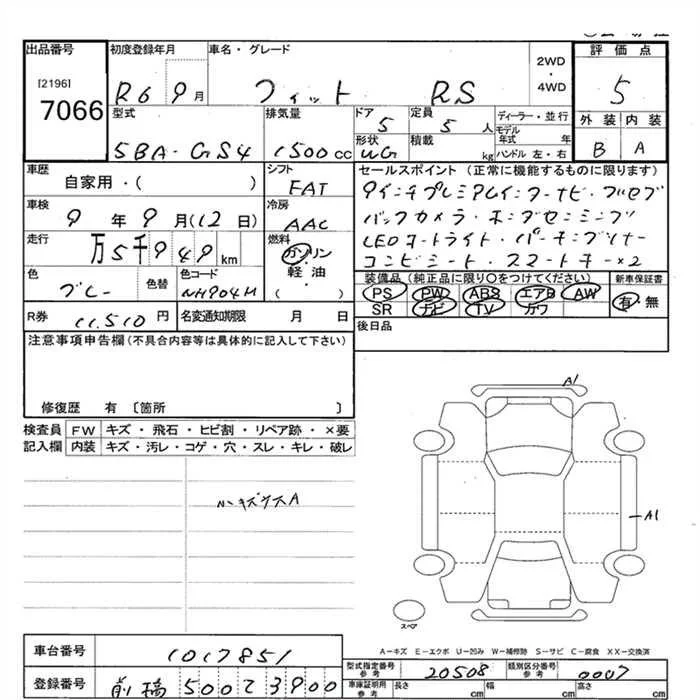 出品番号
[2196]
7066
初度登録年月
R6 9月
車名・グレード
フィット RS
2WD
・
4WD
評価点
5
外装 内装
B A
型式
5BA-GS4
排気量
1500cc
ドア
5
定員
5人
形状
WG
積載
kg
ディーラー・並行
モデル年式 年
ハンドル 左・右
車歴
自家用・( )
シフト
FAT
車検
9年9月(12日)
冷房
AAC
走行
万5千949km
燃料
ガソリン
軽油
( )
色
グレー
色替
色コード
NH904M
R券
11,510円
名変通知期限 月 日
セールスポイント (正常に機能するものに限ります)
9インチプレミアムインターナビ・フルセグ
バックカメラ・ホンダセンシング
LEDヘッドライト・パーキングソナー
コンビシート・スマートキー×2
装備品(純正品に限り〇をつけてください)
新車保証書
PS PW ABS エアB AW
SR ナビ TV カワ
有・無
後日品
注意事項申告欄(不具合内容等は具体的に記入して下さい)
修復歴 有 〔箇所 〕
検査員記入欄
FW キズ・飛石・ヒビ割・リペア跡・×要
内装 キズ・汚レ・コゲ・穴・スレ・キレ・破レ
A1
A1
スペア
A-キズ E-エクボ U-凹み W-補修跡 S-サビ C-腐食 XX-交換済
車台番号
1017851
登録番号
前橋500て3900
型式指定番号
参考
20508
類別区分番号
参考
0007
車庫証明用
参考
長さ cm 幅 cm 高さ cm